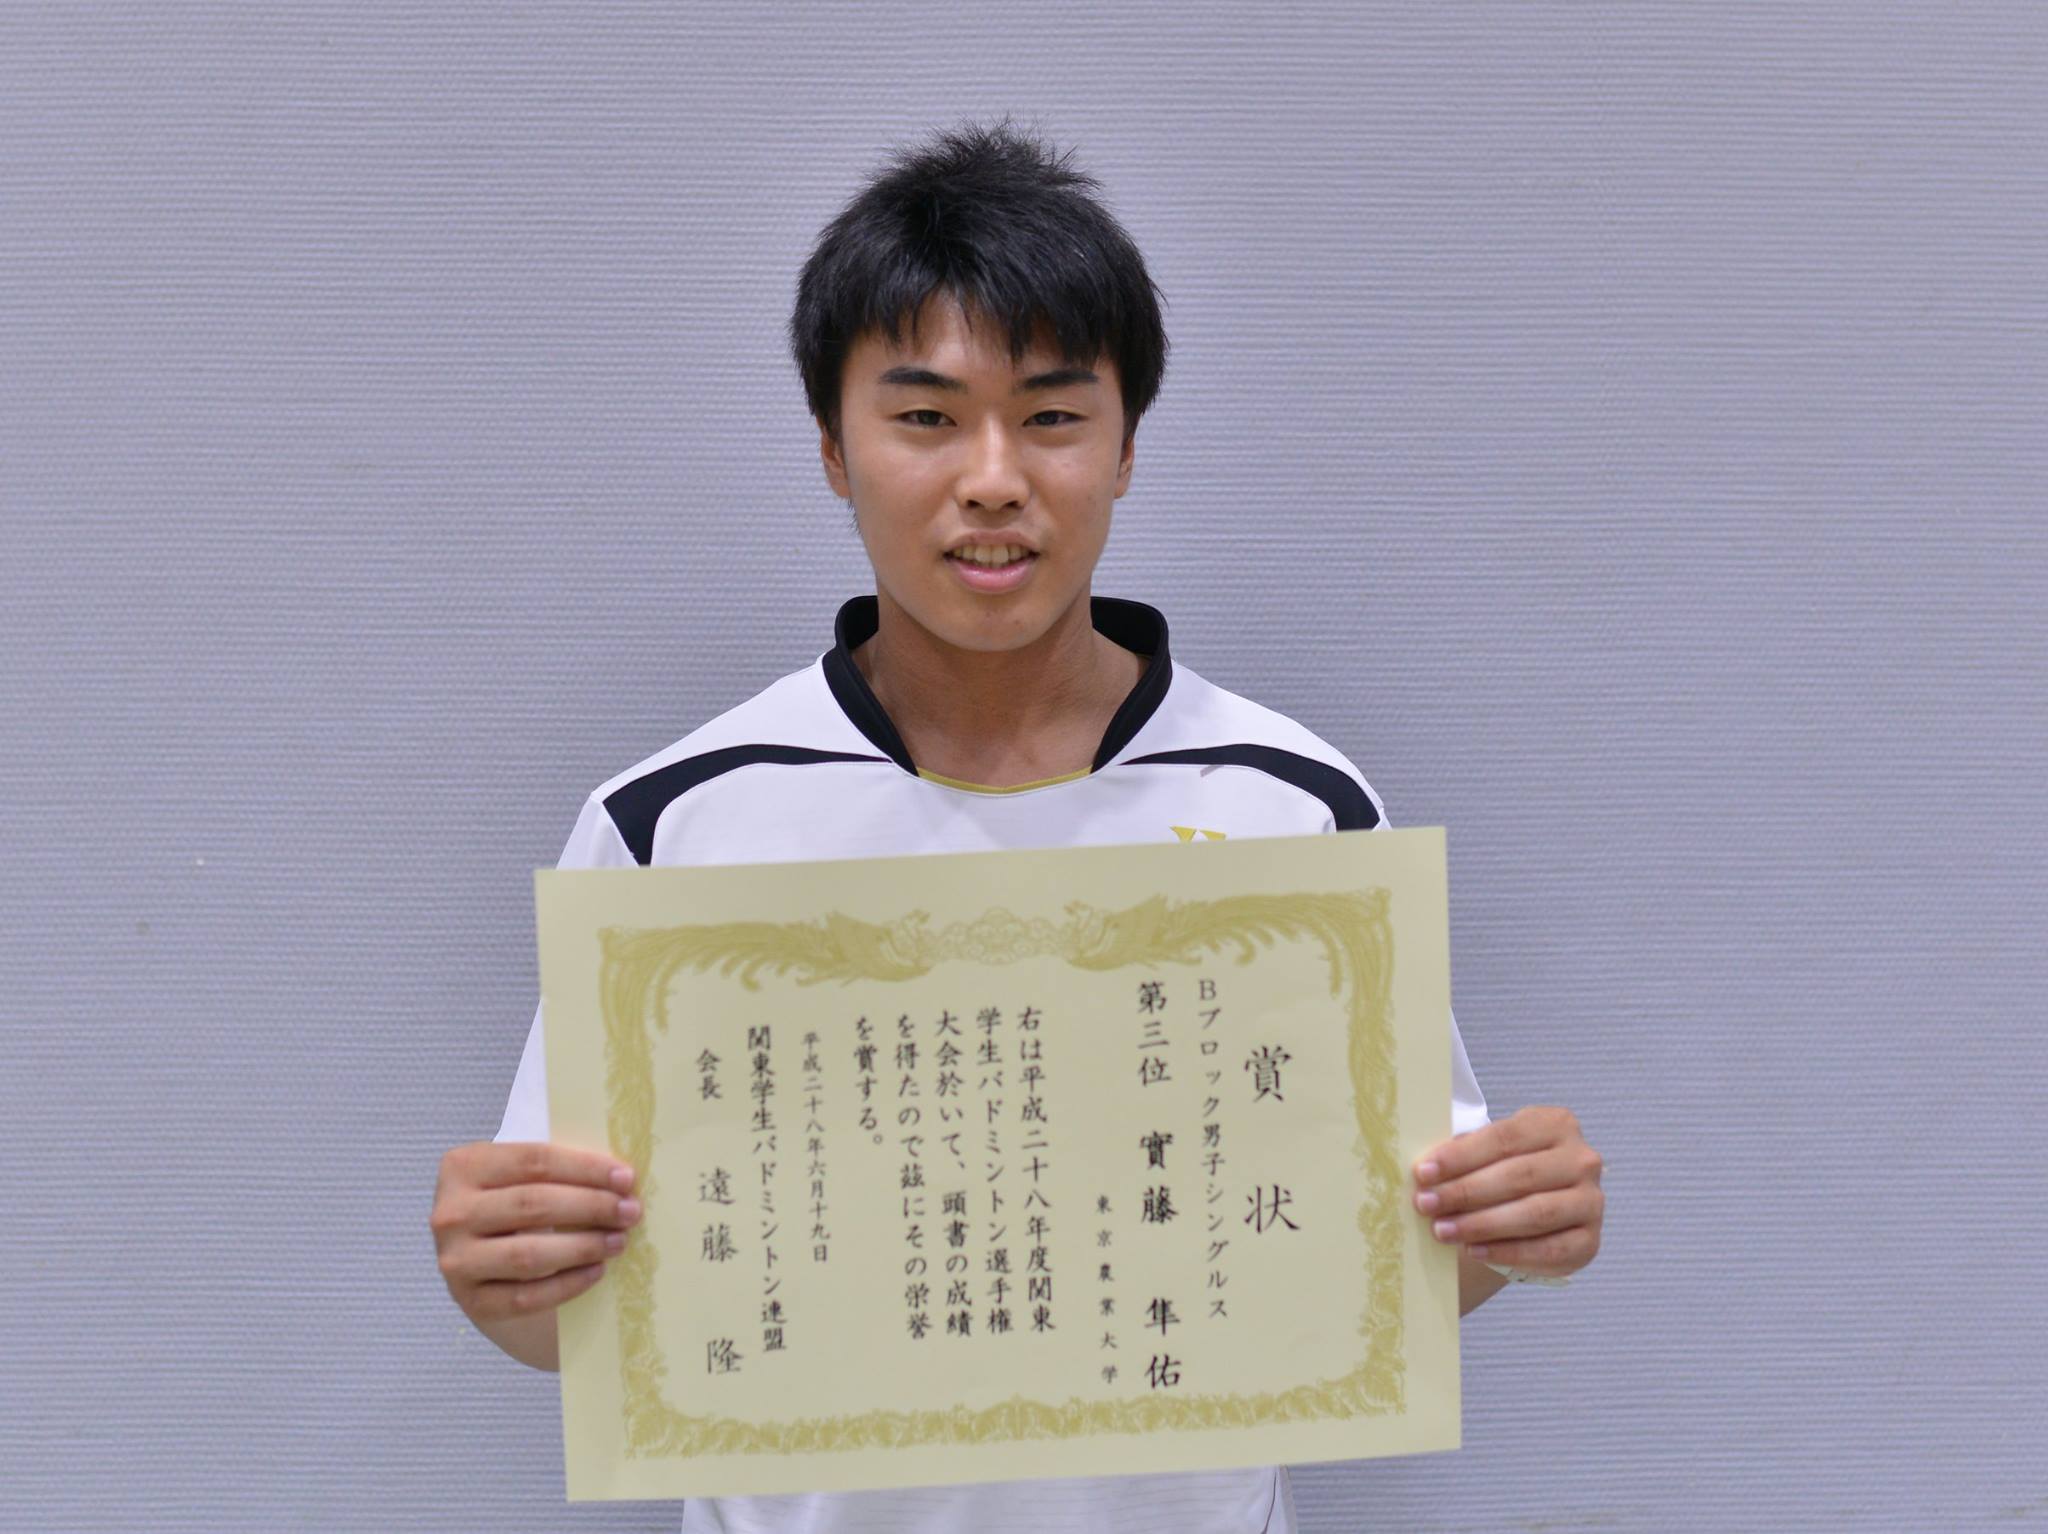 賞状
Bブロック男子シングルス
第三位 實藤 隼佑
東京農業大学
右は平成二十八年度関東
学生バドミントン選手権
大会於いて、頭書の成績
を得たので茲にその栄誉
を賞する。
平成二十八年六月十九日
関東学生バドミントン連盟
会長 遠藤 隆